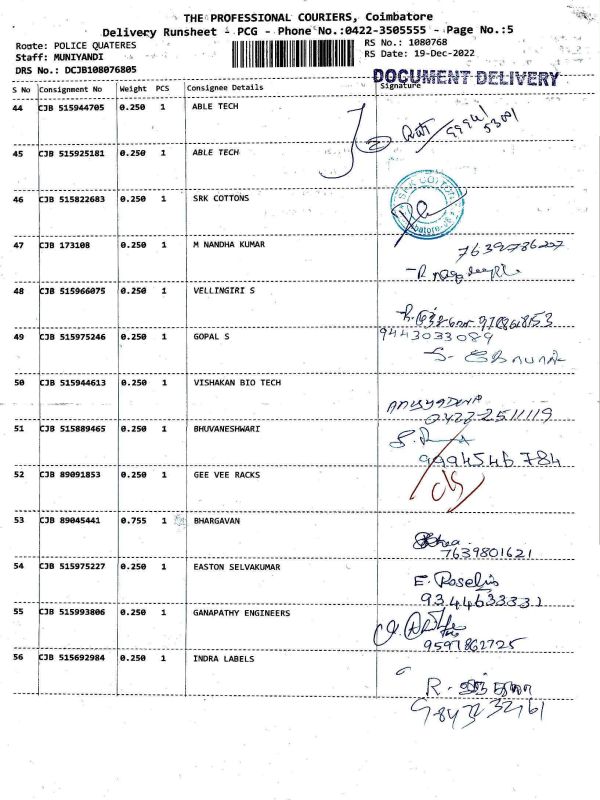 THE PROFESSIONAL COURIERS, Coimbatore
Delivery Runsheet - PCG - Phone No.:0422-3505555 - Page No.:5
Route: POLICE QUATERES
RS No.: 1080768
Staff: MUNIYANDI
RS Date: 19-Dec-2022
DRS No.: DCJB108076805
DOCUMENT DELIVERY
S No Consignment No Weight PCS Consignee Details Signature
44 CJB 515944705 0.250 1 ABLE TECH
45 CJB 515925181 0.250 1 ABLE TECH
46 CJB 515822683 0.250 1 SRK COTTONS
SRK COTTON
47 CJB 173108 0.250 1 M NANDHA KUMAR
48 CJB 515966075 0.250 1 VELLINGIRI S
49 CJB 515975246 0.250 1 GOPAL S
9443033089
50 CJB 515944613 0.250 1 VISHAKAN BIO TECH
0422-2511119
51 CJB 515889465 0.250 1 BHUVANESHWARI
9994546784
52 CJB 89091853 0.250 1 GEE VEE RACKS
53 CJB 89045441 0.755 1 BHARGAVAN
7639801621
54 CJB 515975227 0.250 1 EASTON SELVAKUMAR
E. Roselin
9344633331
55 CJB 515993806 0.250 1 GANAPATHY ENGINEERS
9597862725
56 CJB 515692984 0.250 1 INDRA LABELS
R.